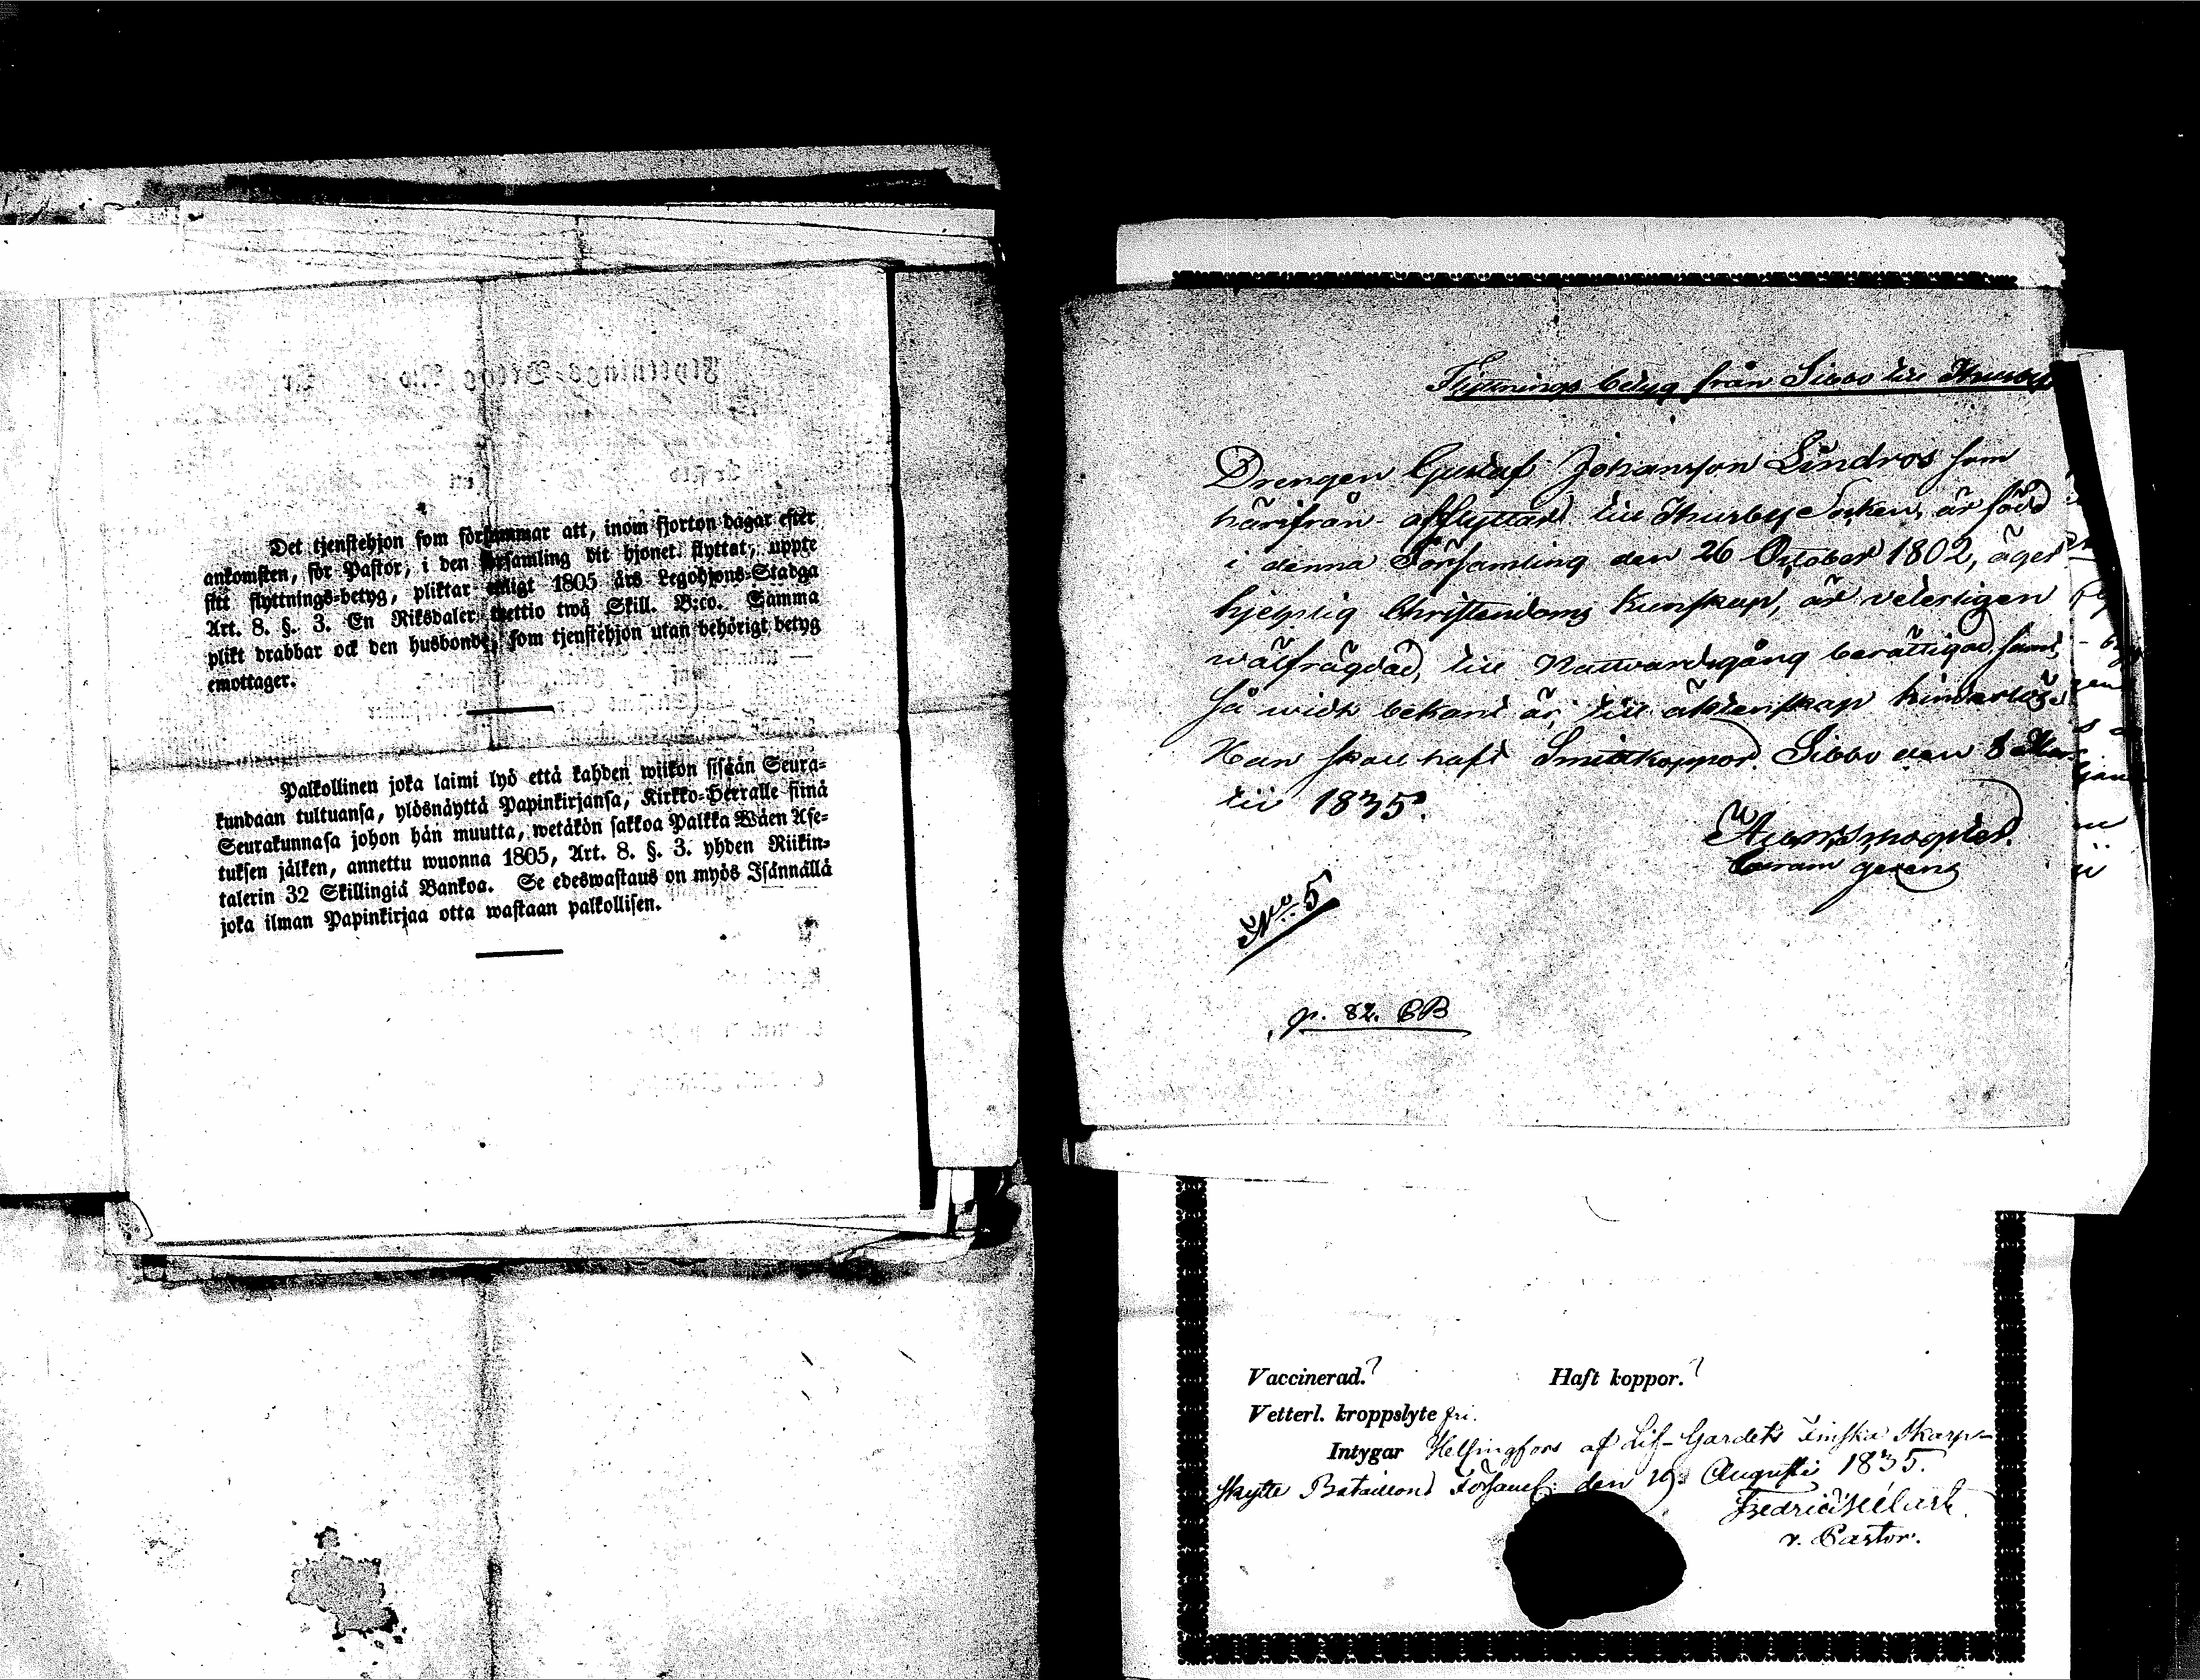 Det tjenstehjon som försummar att, inom fjorton dagar efter
ankomsten, för Pastor, i den församling dit hjonet flyttat, uppte
sitt flyttnings-betyg, pliktar enligt 1805 års Legohjons-Stadga
Art. 8. §. 3. En Riksdaler trettio twå Skill. B:co. Samma
plikt drabbar ock den husbonde, som tjenstehjon utan behörigt betyg
emottager.
Palkollinen joka laimi lyö että kahden wiikon sisään Seura-
kundaan tultuansa, ylösnäyttä Papinkirjansa, Kirkko-Herralle siinä
Seurakunnasa johon hän muutta, wetäkön sakkoa Palkka Wäen Ase-
tuksen jälken, annettu wuonna 1805, Art. 8. §. 3. yhden Riikin-
talerin 32 Skillingiä Bankoa. Se edeswastaus on myös Isännällä
joka ilman Papinkirjaa otta wastaan palkollisen.
Flyttnings betyg från Sibbo till Thusby
Drengen Gustaf Johansson Lindros som
härifrån afflyttad till Thusby Socken, är född
i denna Församling den 26 October 1802, äger
hjelplig Christendoms Kunskap, är veterligen
wälfrägdad, till Nattvardsgång berättigad, samt,
så widt bekant är, till äktenskap hinderlös.
Han skall haft Smittkoppor. Sibbo den 8
1835.
Curam gerens
No 5
p. 82. CB
Vaccinerad.? Haft koppor.?
Vetterl. kroppslyte fri.
Intygar Helsingfors af Lif-Gardets Finska Skarp-
skytte Bataillons Församl: den 19 Augusti 1835.
v. Pastor.